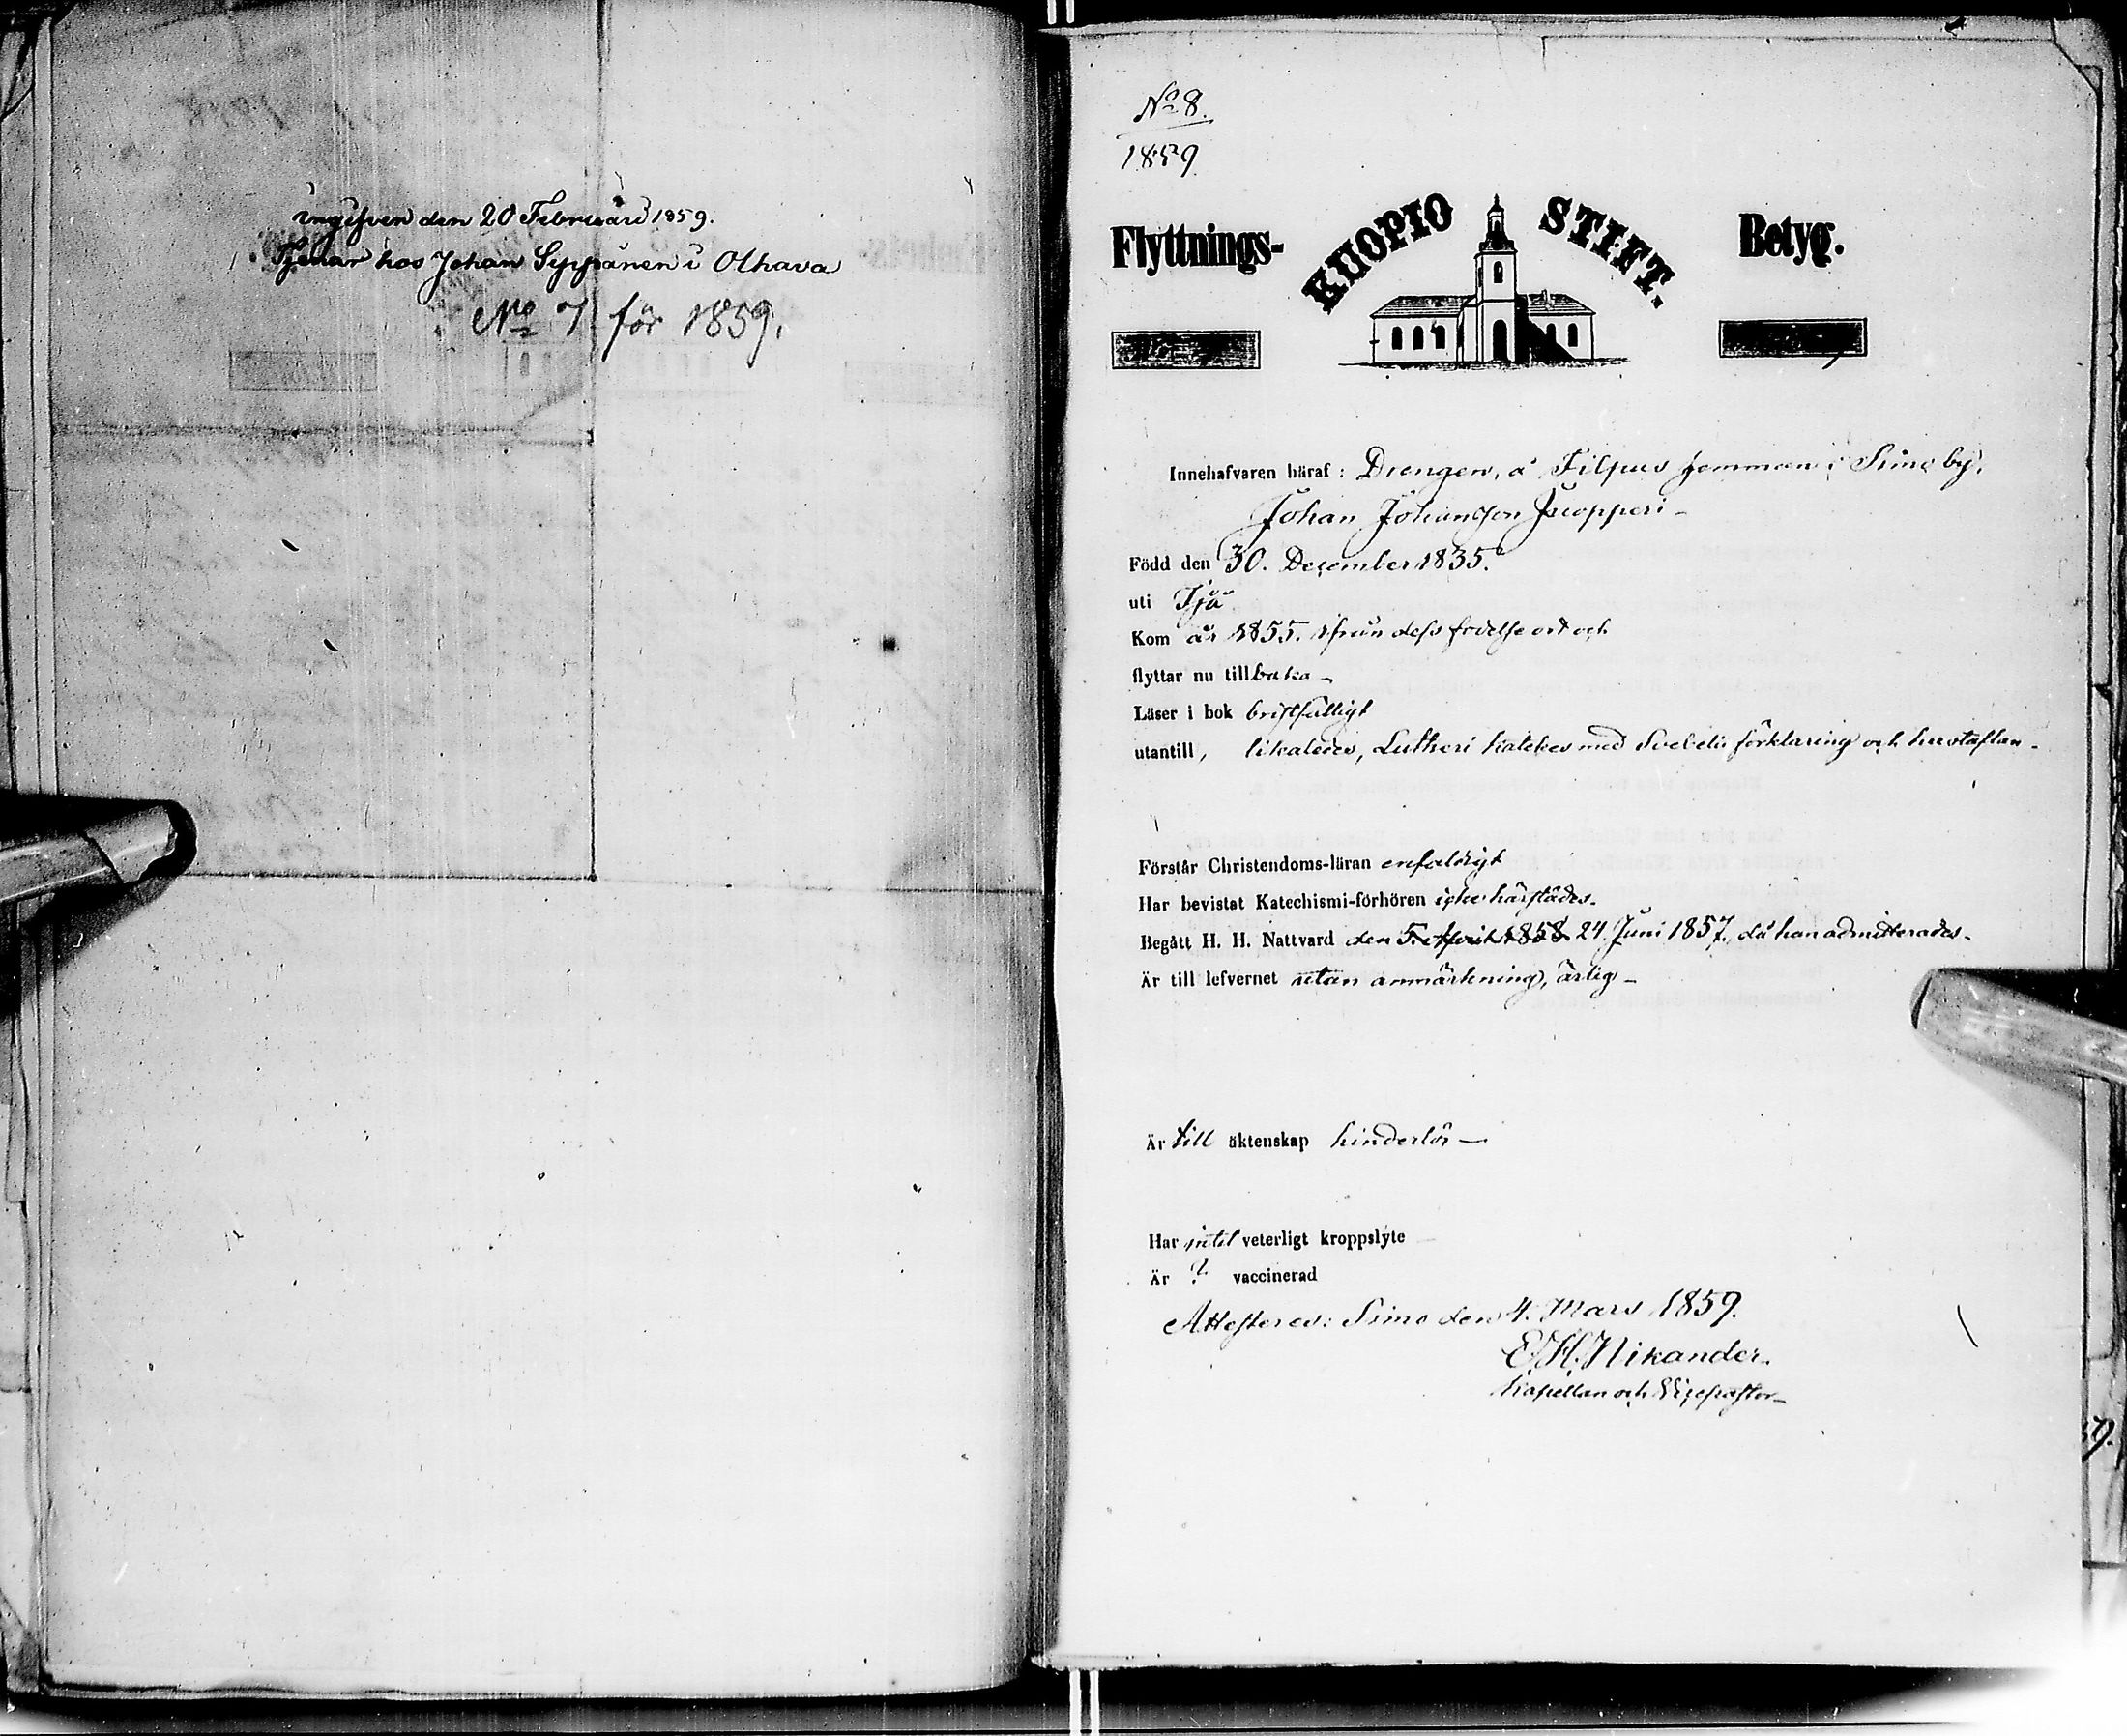 ingifven den 20 Februari 1859.
Tjenar hos Johan Seppänen i Olhava
No 7 för 1859.
No 8.
1859
Flyttnings- KUOPIO STIFT. Betyg.
Innehafvaren häraf: Drengen, å Filpus Jemman i Simo by,
Johan Johansson Juopperi
Född den 30. December 1835.
uti Ijå
Kom år 1855. ifrån dess födelse ort och
flyttar nu tillbaka
Läser i bok bristfälligt
utantill, likaledes, Lutheri kateches med Svebelii förklaring och hustaflan.
Förstår Christendoms-läran enfaldigt
Har bevistat Katechismi-förhören icke härstädes.
Begått H. H. Nattvard den 5. April 1858 24. Juni 1857, då han admitterades.
Är till lefvernet utan anmärkning, ärlig
Är till äktenskap hinderlös
Har intet veterligt kroppslyte
Är ? vaccinerad
Attesteres: Simo den 4. Mars 1859.
E. H. Nikander
Kapellan och Vicepastor
59.